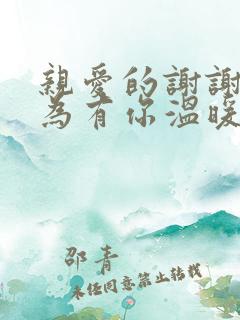 親愛的謝謝
為有你溫暖
邵青
未經同意禁止轉載